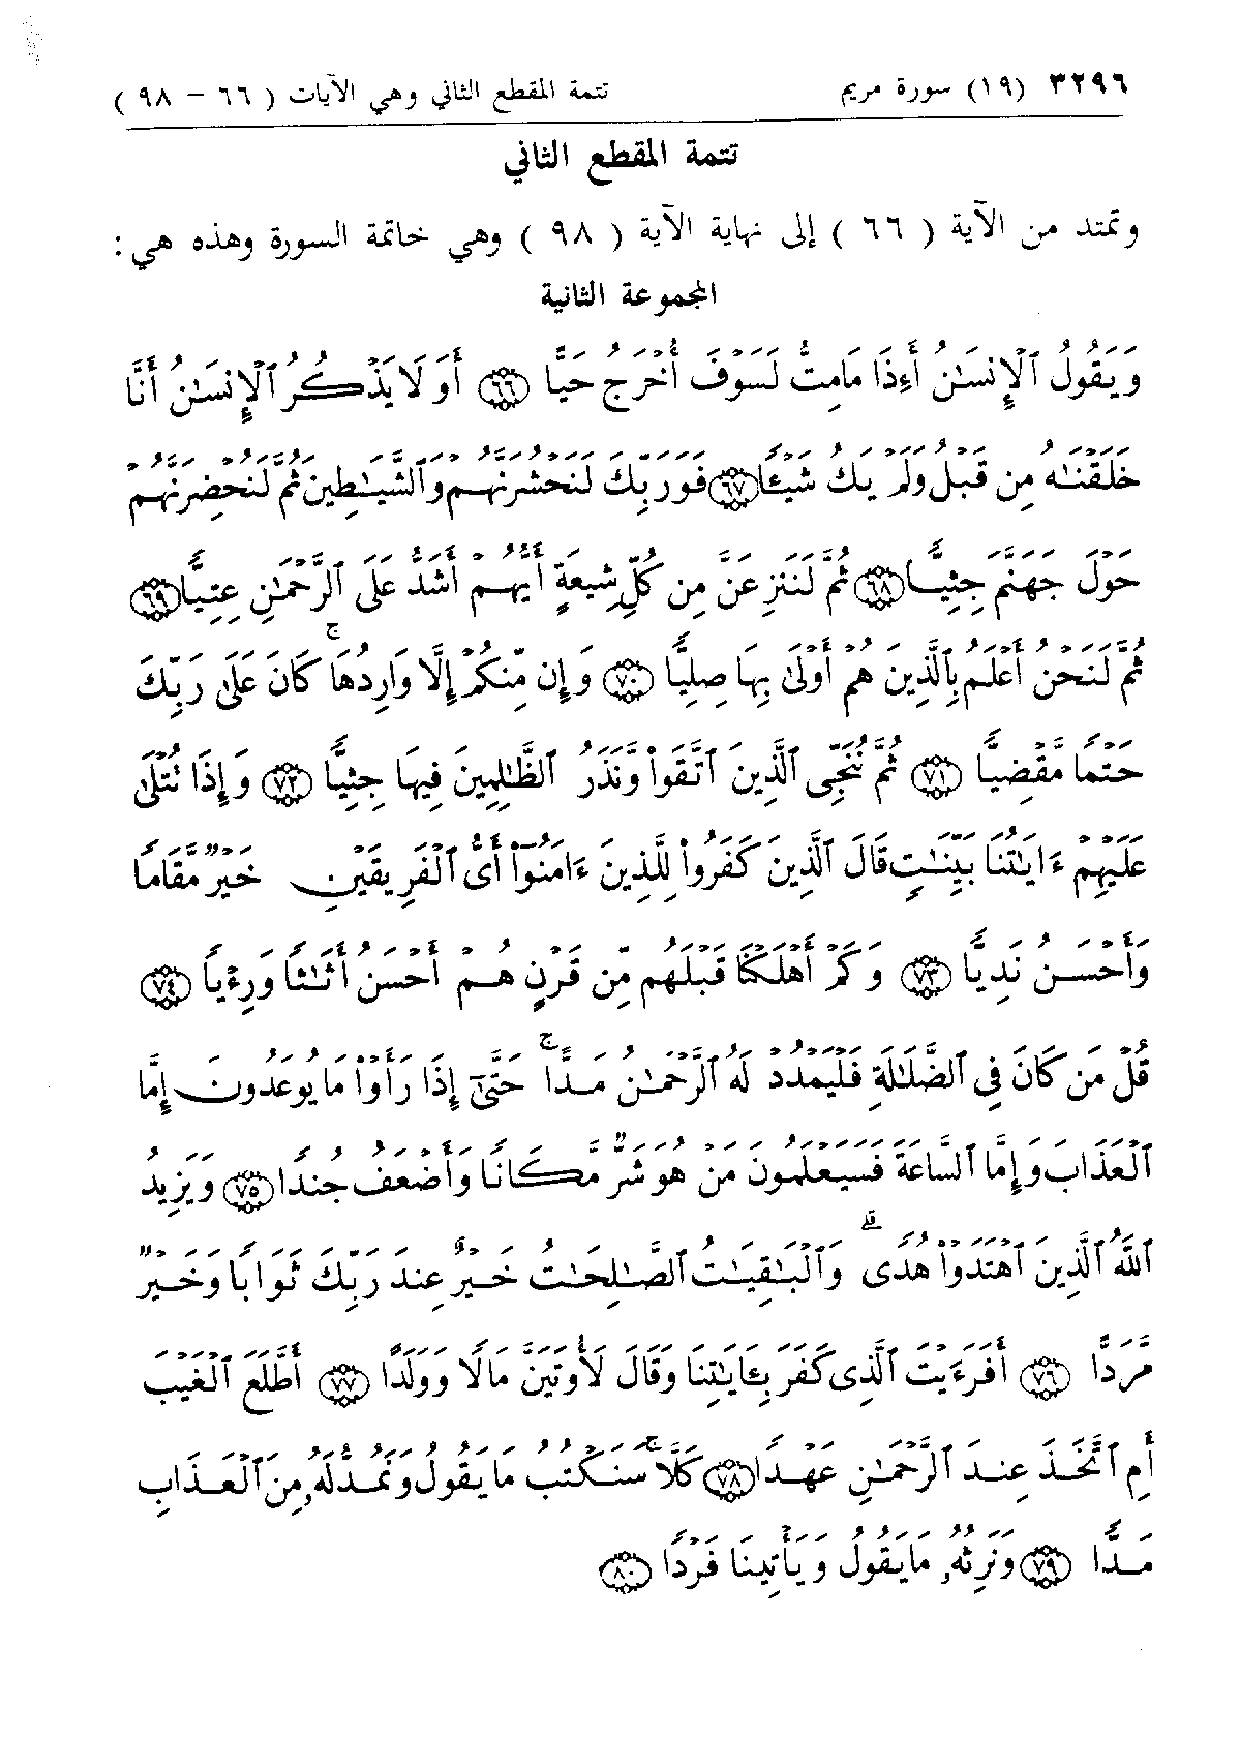 ٣٢٩٦ (١٩) سورة مريم تتمة المقطع الثاني وهي الآيات ( ٦٦ – ٩٨ )
تتمة المقطع الثاني
وتمتد من الآية ( ٦٦ ) إلى نهاية الآية ( ٩٨ ) وهي خاتمة السورة وهذه هي :
المجموعة الثانية
وَيَقُولُ ٱلْإِنسَـٰنُ أَءِذَا مَامِتُّ لَسَوْفَ أُخْرَجُ حَيًّا ﴿٦٦﴾ أَوَلَا يَذْكُرُ ٱلْإِنسَـٰنُ أَنَّا
خَلَقْنَـٰهُ مِن قَبْلُ وَلَمْ يَكُ شَيْـًٔا ﴿٦٧﴾ فَوَرَبِّكَ لَنَحْشُرَنَّهُمْ وَٱلشَّيَـٰطِينَ ثُمَّ لَنُحْضِرَنَّهُمْ
حَوْلَ جَهَنَّمَ جِثِيًّا ﴿٦٨﴾ ثُمَّ لَنَنزِعَنَّ مِن كُلِّ شِيعَةٍ أَيُّهُمْ أَشَدُّ عَلَى ٱلرَّحْمَـٰنِ عِتِيًّا ﴿٦٩﴾
ثُمَّ لَنَحْنُ أَعْلَمُ بِٱلَّذِينَ هُمْ أَوْلَىٰ بِهَا صِلِيًّا ﴿٧٠﴾ وَإِن مِّنكُمْ إِلَّا وَارِدُهَا ۚ كَانَ عَلَىٰ رَبِّكَ
حَتْمًا مَّقْضِيًّا ﴿٧١﴾ ثُمَّ نُنَجِّى ٱلَّذِينَ ٱتَّقَوا۟ وَّنَذَرُ ٱلظَّـٰلِمِينَ فِيهَا جِثِيًّا ﴿٧٢﴾ وَإِذَا تُتْلَىٰ
عَلَيْهِمْ ءَايَـٰتُنَا بَيِّنَـٰتٍ قَالَ ٱلَّذِينَ كَفَرُوا۟ لِلَّذِينَ ءَامَنُوٓا۟ أَىُّ ٱلْفَرِيقَيْنِ خَيْرٌ مَّقَامًا
وَأَحْسَنُ نَدِيًّا ﴿٧٣﴾ وَكَمْ أَهْلَكْنَا قَبْلَهُم مِّن قَرْنٍ هُمْ أَحْسَنُ أَثَـٰثًا وَرِءْيًا ﴿٧٤﴾
قُلْ مَن كَانَ فِى ٱلضَّلَـٰلَةِ فَلْيَمْدُدْ لَهُ ٱلرَّحْمَـٰنُ مَدًّا ۚ حَتَّىٰٓ إِذَا رَأَوْا۟ مَا يُوعَدُونَ إِمَّا
ٱلْعَذَابَ وَإِمَّا ٱلسَّاعَةَ فَسَيَعْلَمُونَ مَنْ هُوَ شَرٌّ مَّكَانًا وَأَضْعَفُ جُندًا ﴿٧٥﴾ وَيَزِيدُ
ٱللَّهُ ٱلَّذِينَ ٱهْتَدَوْا۟ هُدًى ۗ وَٱلْبَـٰقِيَـٰتُ ٱلصَّـٰلِحَـٰتُ خَيْرٌ عِندَ رَبِّكَ ثَوَابًا وَخَيْرٌ
مَّرَدًّا ﴿٧٦﴾ أَفَرَءَيْتَ ٱلَّذِى كَفَرَ بِـَٔايَـٰتِنَا وَقَالَ لَأُوتَيَنَّ مَالًا وَوَلَدًا ﴿٧٧﴾ أَطَّلَعَ ٱلْغَيْبَ
أَمِ ٱتَّخَذَ عِندَ ٱلرَّحْمَـٰنِ عَهْدًا ﴿٧٨﴾ كَلَّا ۚ سَنَكْتُبُ مَا يَقُولُ وَنَمُدُّ لَهُۥ مِنَ ٱلْعَذَابِ
مَدًّا ﴿٧٩﴾ وَنَرِثُهُۥ مَا يَقُولُ وَيَأْتِينَا فَرْدًا ﴿٨٠﴾